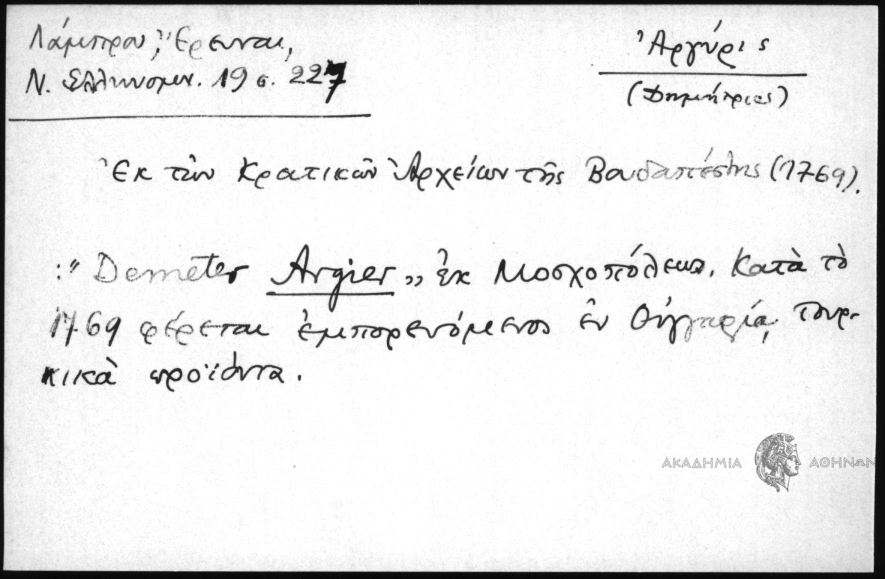 Λάμπρου, Ἔρευναι,
Ν. Ἑλληνομν. 19 σ. 227
Ἀργύρις
(Δημήτριος)
Ἐκ τῶν Κρατικῶν Ἀρχείων τῆς Βουδαπέστης (1769).
:" Demeter Argier „ ἐκ Μοσχοπόλεως. Κατὰ τὸ
1769 φέρεται ἐμπορευόμενος ἐν Οὑγγαρίᾳ Τουρ-
κικὰ προϊόντα.
ΑΚΑΔΗΜΙΑ ΑΘΗΝΩΝ